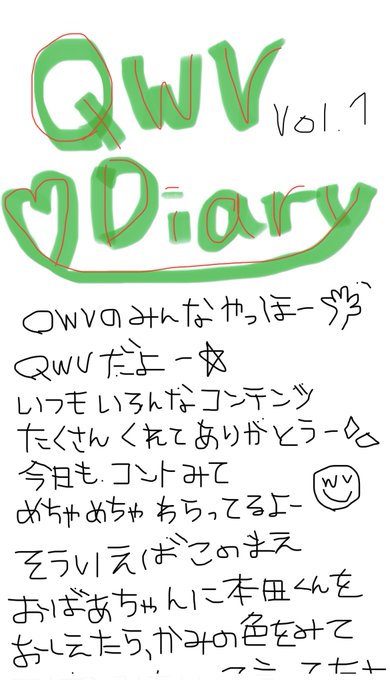 QWV vol.1
Diary
QWVのみんなやっほー
QWVだよー☆
いつもいろんなコンテンツ
たくさんくれてありがとうー
今日も.コントみて
WV
めちゃめちゃわらってるよー
そういえばこのまえ
おばあちゃんに本田くんを
おしえたら、かみの色をみて